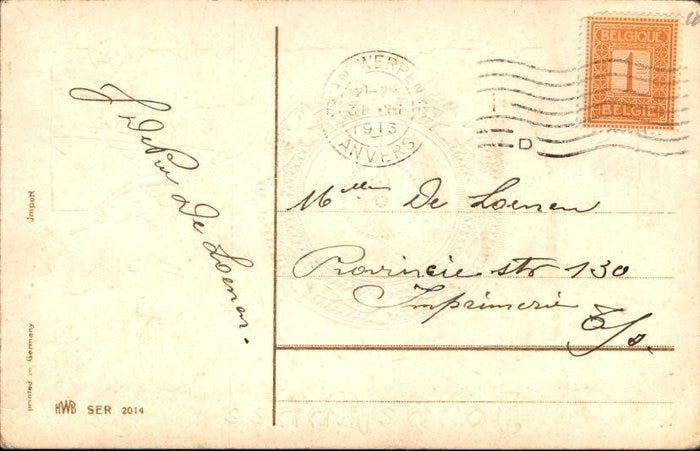 J De Pen De Loenen.
Import
printed in Germany
HWB SER 2014
ANTWERPEN
1913
ANVERS
D
BELGIQUE
1
BELGIË
Mlle De Loenen
Provincie str 130
Imprimerie E/s.